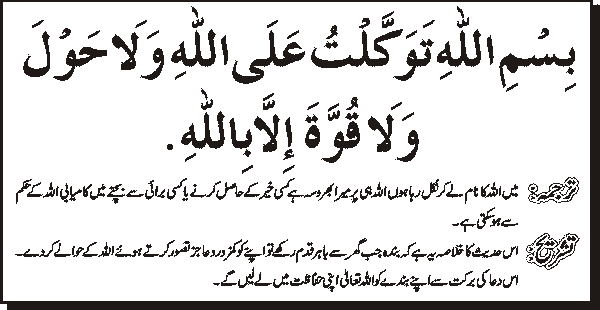 بِسْمِ اللّٰهِ تَوَكَّلْتُ عَلَى اللّٰهِ وَلَا حَوْلَ
وَلَا قُوَّةَ إِلَّا بِاللّٰهِ.
ترجمہ: میں اللہ کا نام لے کر نکل رہا ہوں اللہ ہی پر میرا بھروسہ ہے کسی خیر کے حاصل کرنے یا کسی برائی سے بچنے میں کامیابی اللہ کے حکم
سے ہو سکتی ہے۔
تشریح: اس حدیث کا خلاصہ یہ ہے کہ بندہ جب گھر سے باہر قدم رکھے تو اپنے کو کمزور و عاجز تصور کرتے ہوئے اللہ کے حوالے کر دے۔
اس دعا کی برکت سے اپنے بندے کو اللہ تعالیٰ اپنی حفاظت میں لے لیں گے۔